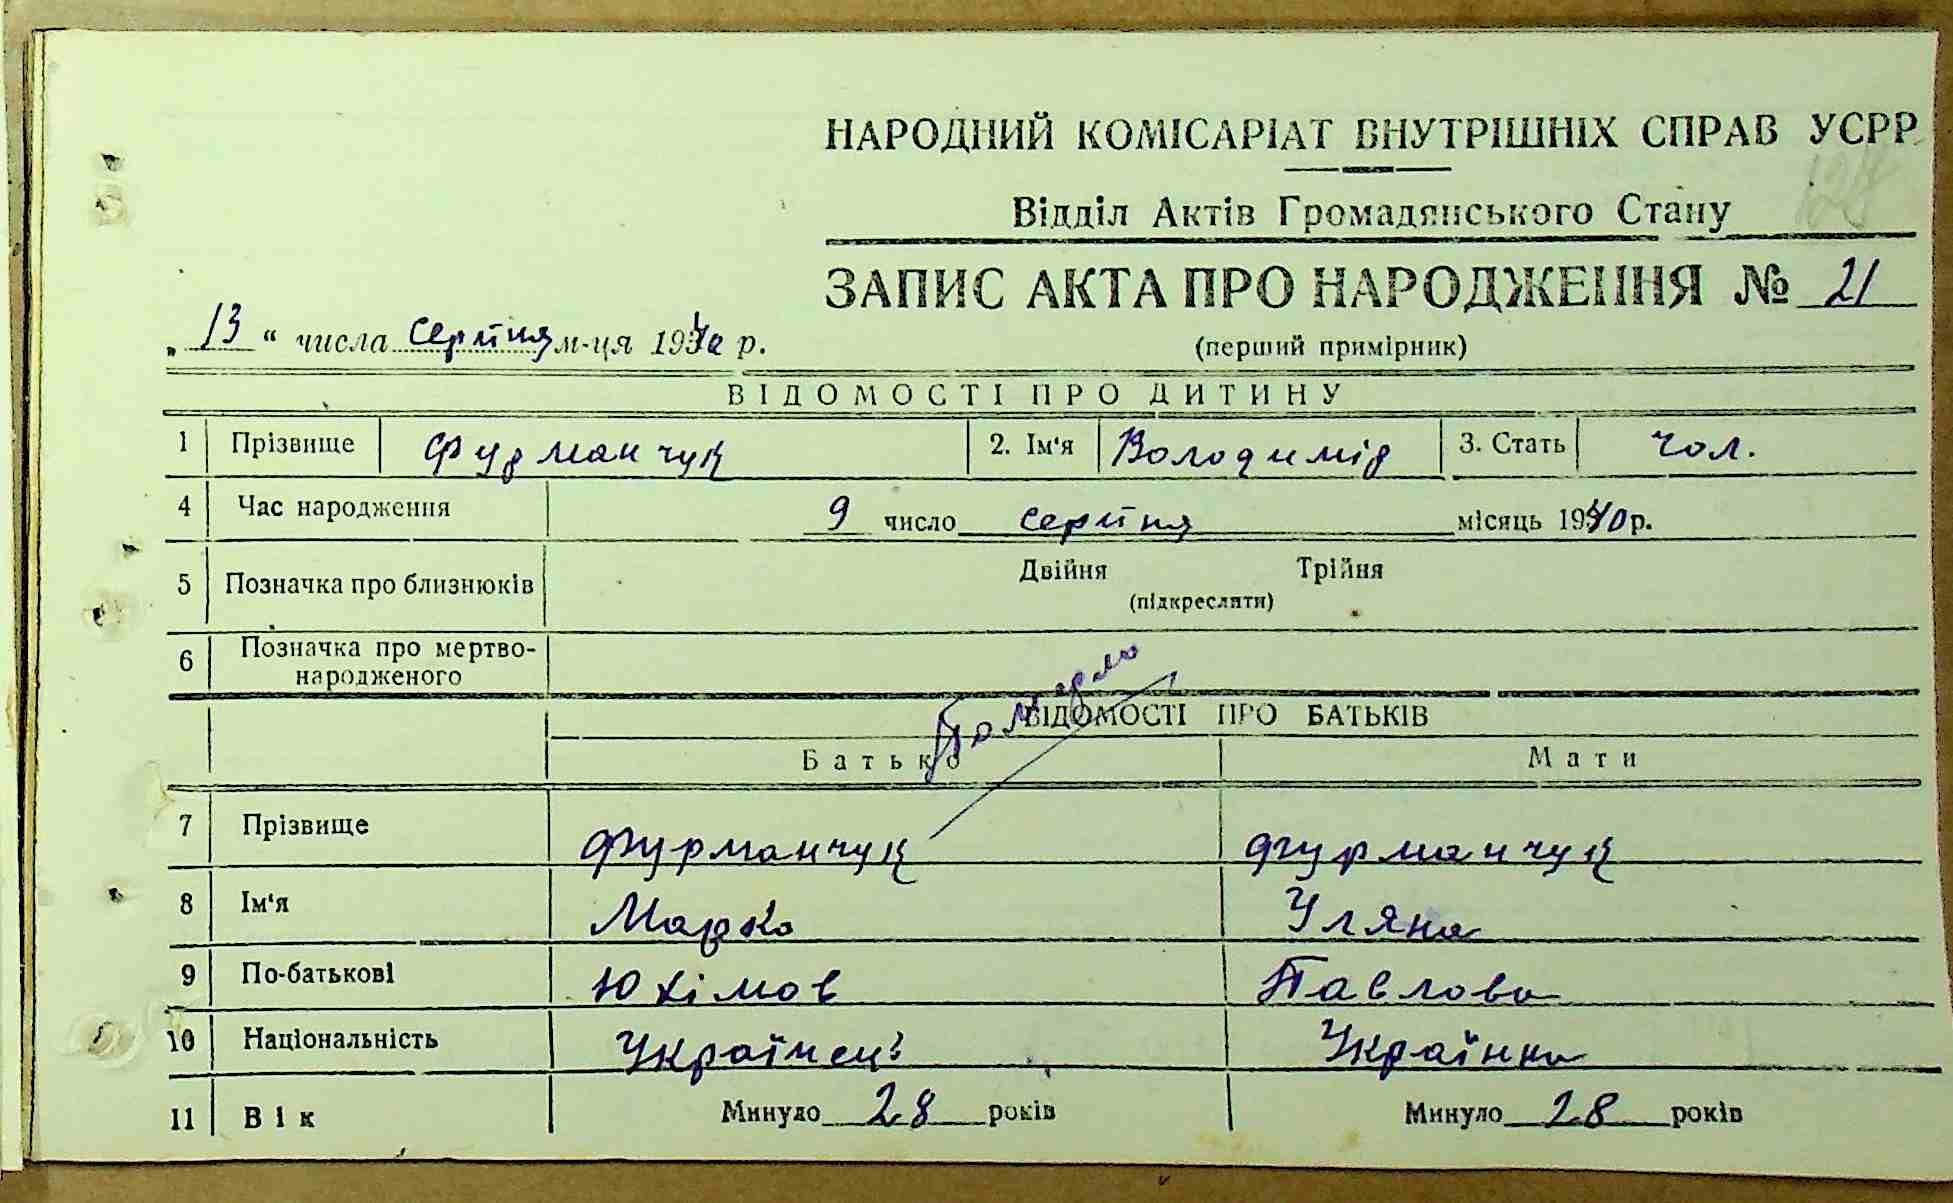 НАРОДНИЙ КОМІСАРІАТ ВНУТРІШНІХ СПРАВ УСРР
Відділ Актів Громадянського Стану
ЗАПИС АКТА ПРО НАРОДЖЕННЯ № 21
„ 13 “ числа серпня м-ця 1940 р.
(перший примірник)
ВІДОМОСТІ ПРО ДИТИНУ
1 Прізвище Фурманчук 2. Ім'я Володимір 3. Стать чол.
4 Час народження 9 число серпня місяць 1940 р.
5 Позначка про близнюків Двійня Трійня
(підкреслити)
6 Позначка про мертво-
народженого
Померло
ВІДОМОСТІ ПРО БАТЬКІВ
Батько Мати
7 Прізвище Фурманчук Фурманчук
8 Ім'я Марко Уляна
9 По-батькові Юхімов Павлова
10 Національність Українець Українка
11 Вік Минуло 28 років Минуло 28 років